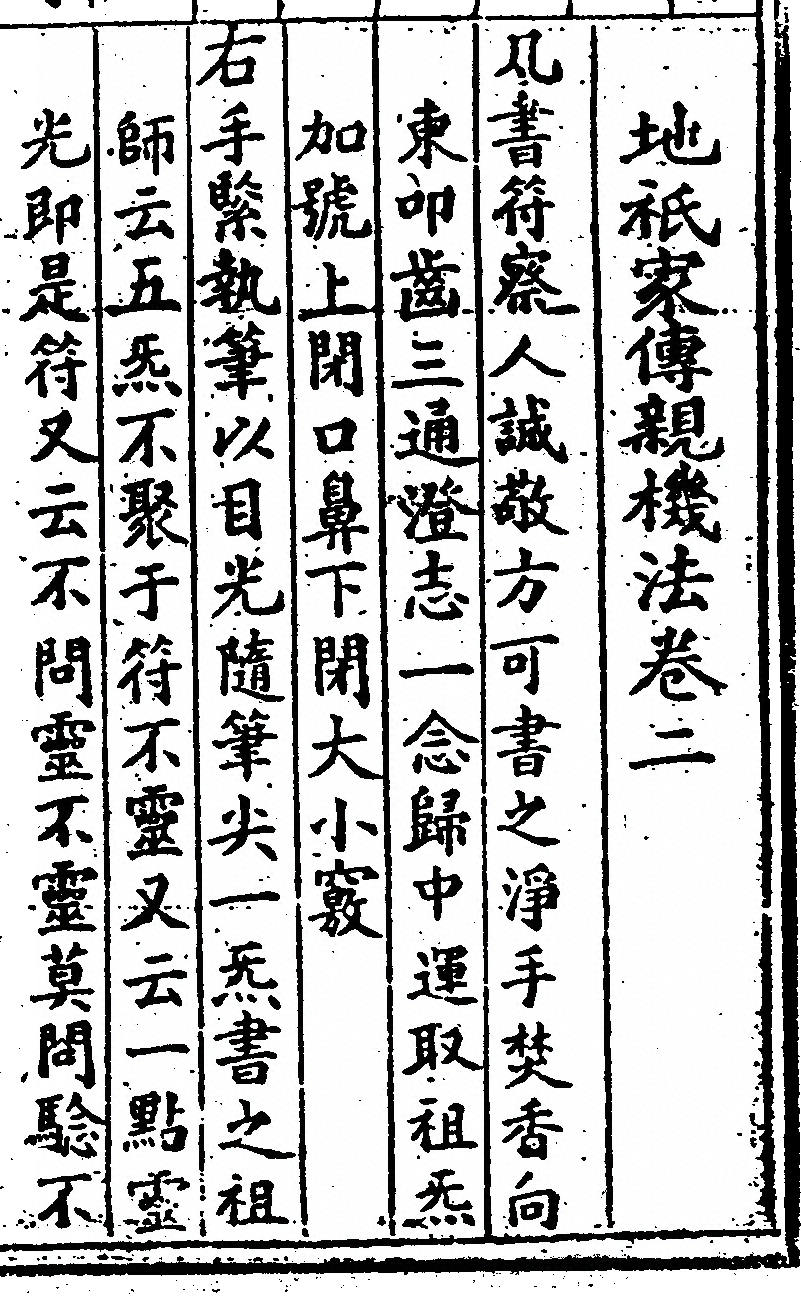 地祇家傳親機法卷二
凡書符察人誠敬方可書之淨手焚香向
東叩齒三通澄志一念歸中運取祖炁
加號上閉口鼻下閉大小竅
右手緊執筆以目光隨筆尖一炁書之祖
師云五炁不聚于符不靈又云一點靈
光即是符又云不問靈不靈莫問驗不